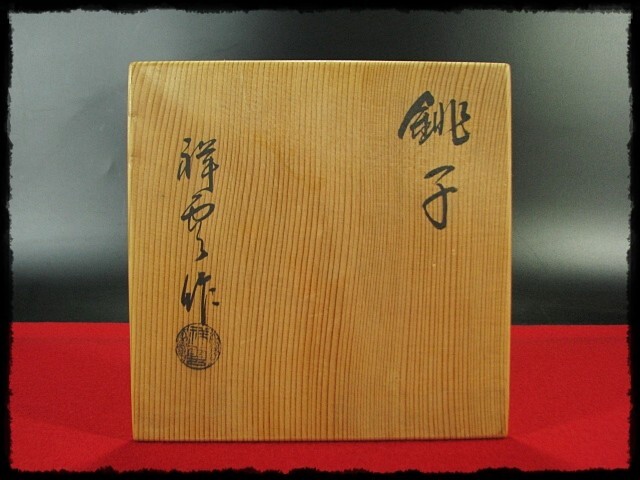 銚子
祥雲作